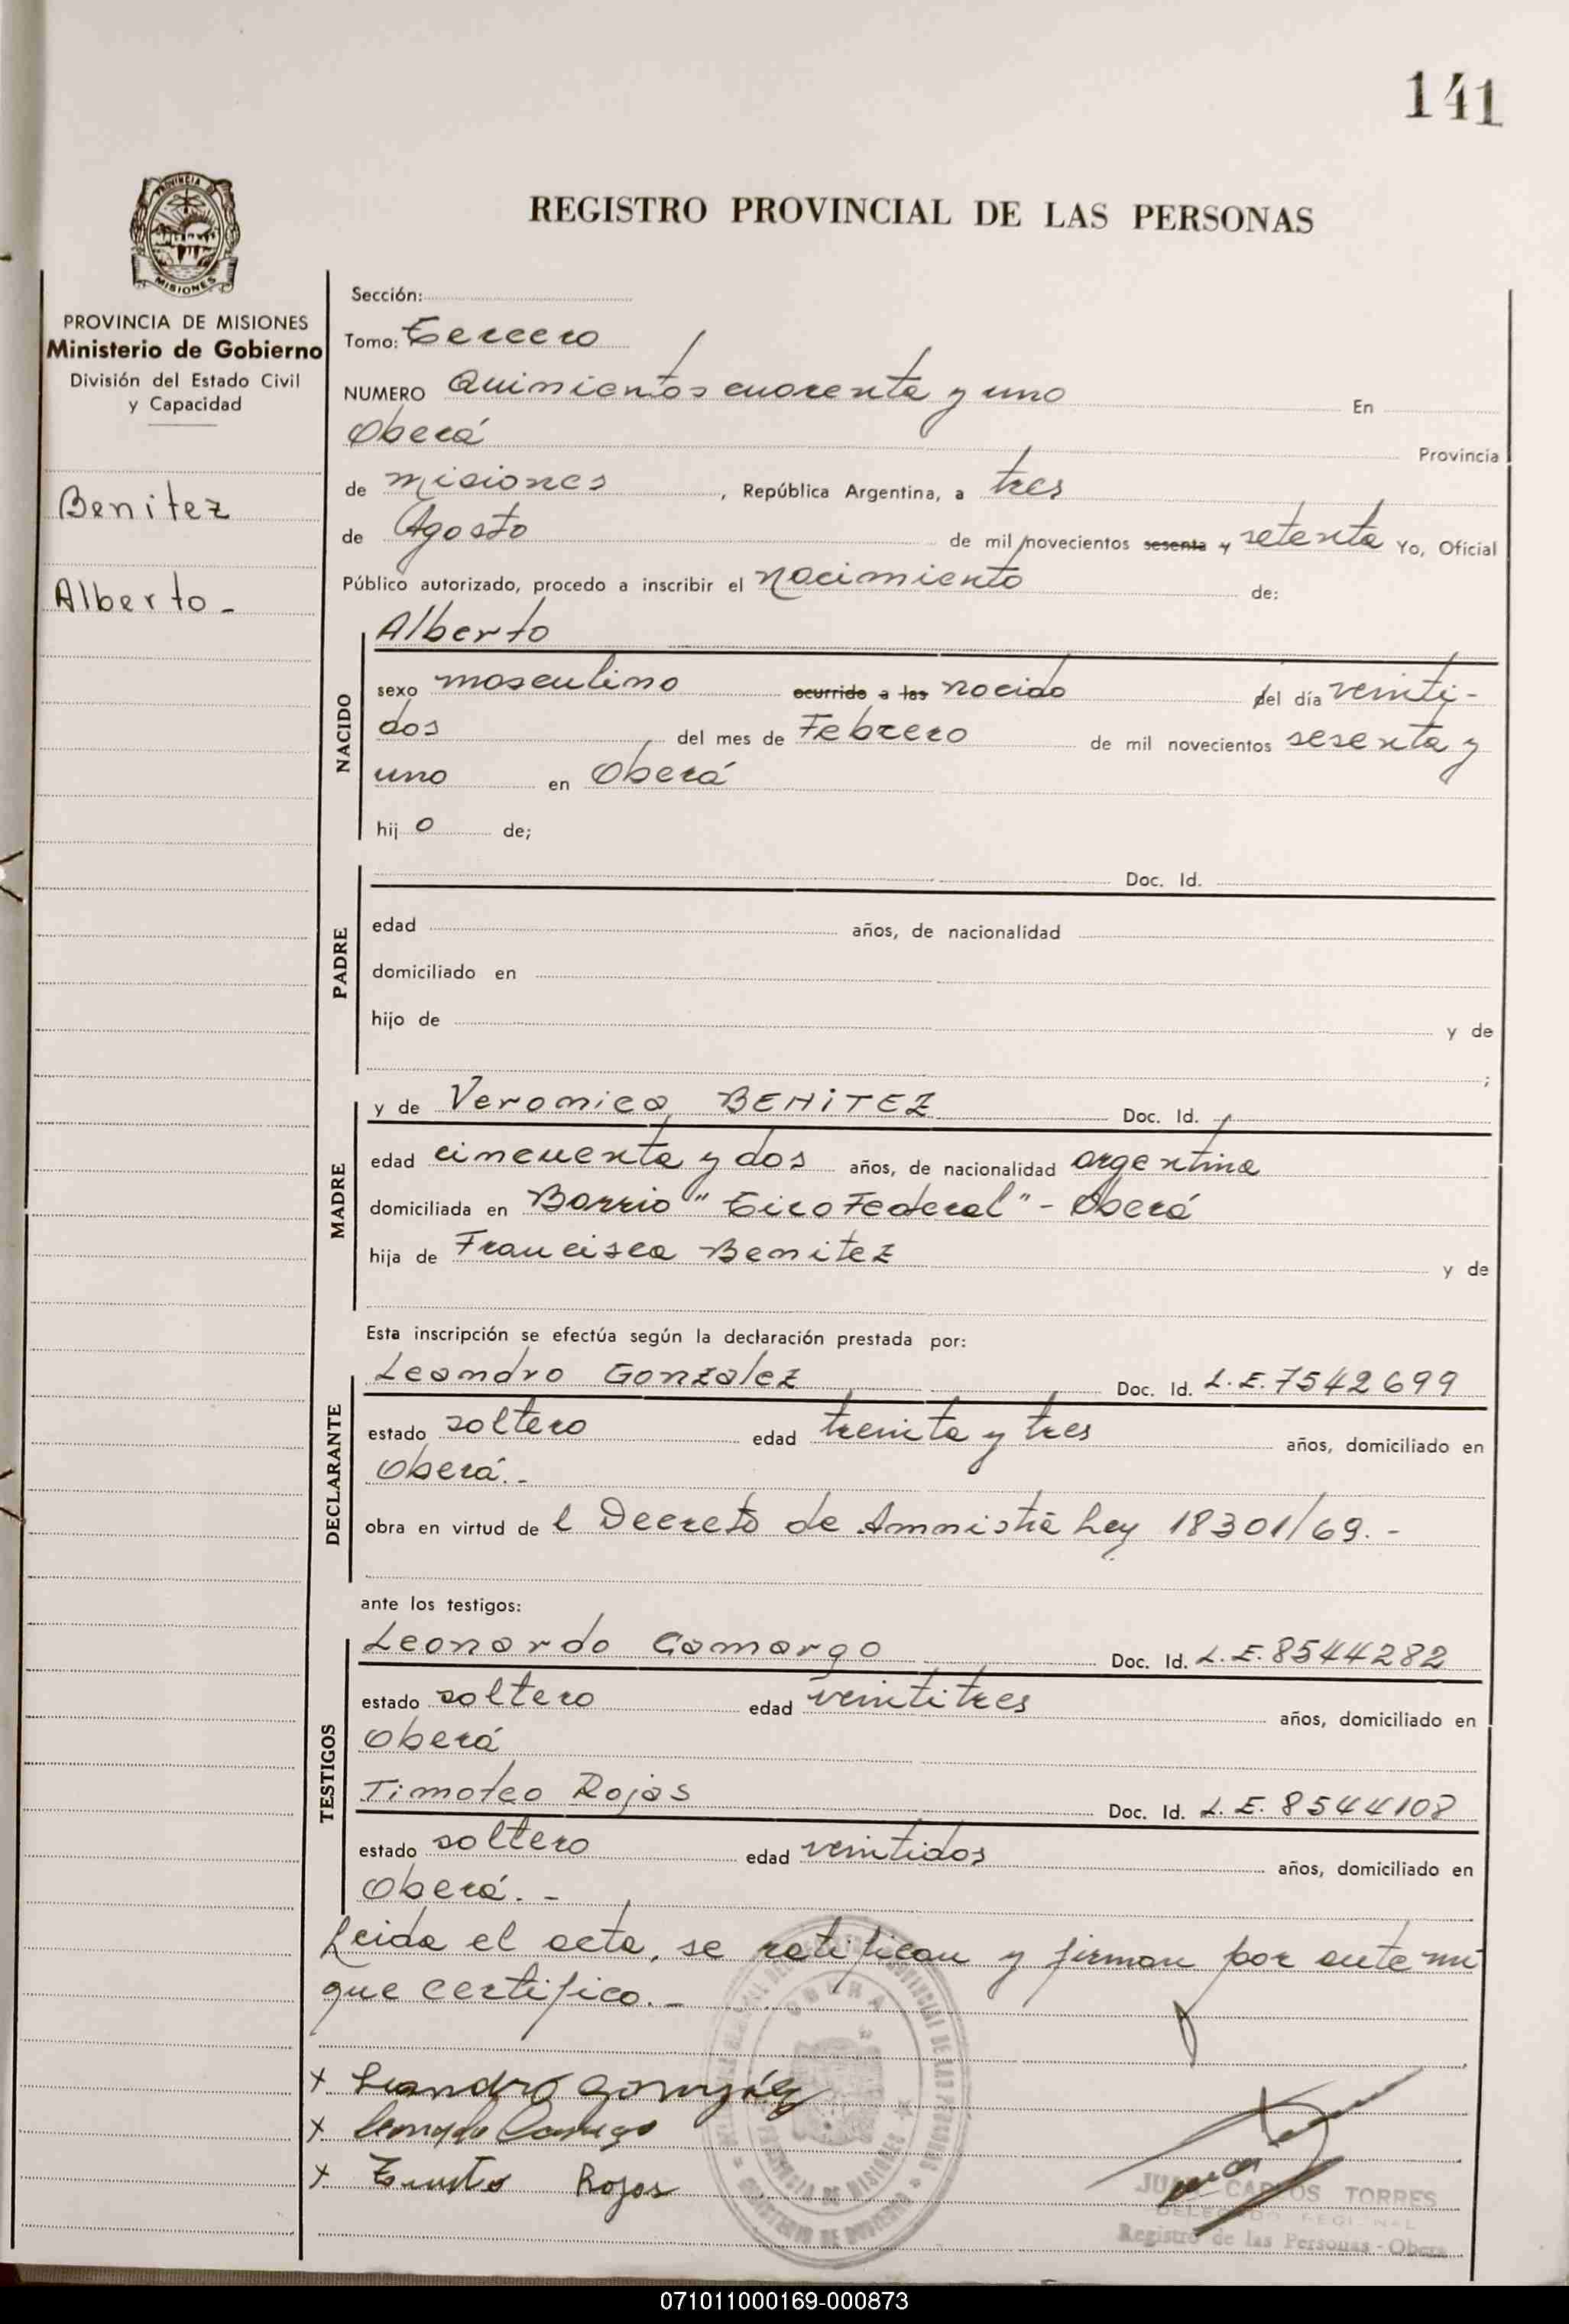 141
PROVINCIA DE
MISIONES
REGISTRO PROVINCIAL DE LAS PERSONAS
PROVINCIA DE MISIONES
Ministerio de Gobierno
División del Estado Civil
y Capacidad
Benitez
Alberto -
Sección:
Tomo: Tercero
NUMERO Quinientos cuarenta y uno En
Oberá Provincia
de Misiones, República Argentina, a tres
de Agosto de mil novecientos sesenta y setenta Yo, Oficial
Público autorizado, procedo a inscribir el nacimiento de:
NACIDO
Alberto
sexo masculino ocurrido a las nacido del día veinti-
dos del mes de Febrero de mil novecientos sesenta y
uno en Oberá
hij o de;
PADRE
Doc. Id.
edad años, de nacionalidad
domiciliado en
hijo de y de
;
MADRE
y de Veronica BENITEZ Doc. Id. -
edad cincuenta y dos años, de nacionalidad argentina
domiciliada en Barrio "Tiro Federal" - Oberá
hija de Francisca Benitez y de
Esta inscripción se efectúa según la declaración prestada por:
DECLARANTE
Leandro Gonzalez Doc. Id. L.E.7542699
estado soltero edad treinta y tres años, domiciliado en
Oberá.-
obra en virtud de l Decreto de Amnistia Ley 18301/69.-
ante los testigos:
TESTIGOS
Leonardo Camargo Doc. Id. L.E.8544282
estado soltero edad veintitres años, domiciliado en
Oberá
Timoteo Rojas Doc. Id. L.E. 8544108
estado soltero edad veintidos años, domiciliado en
Oberá.-
Leida el acta, se ratifican y firman por ante mi
que certifico.-
OBERA
PROVINCIA DE MISIONES
MINISTERIO DE GOBIERNO
x Leandro Gonzalez
x Camargo
x Rojas
JUAN CARLOS TORRES
DELEGADO REGIONAL
Registro de las Personas - Obera
071011000169-000873